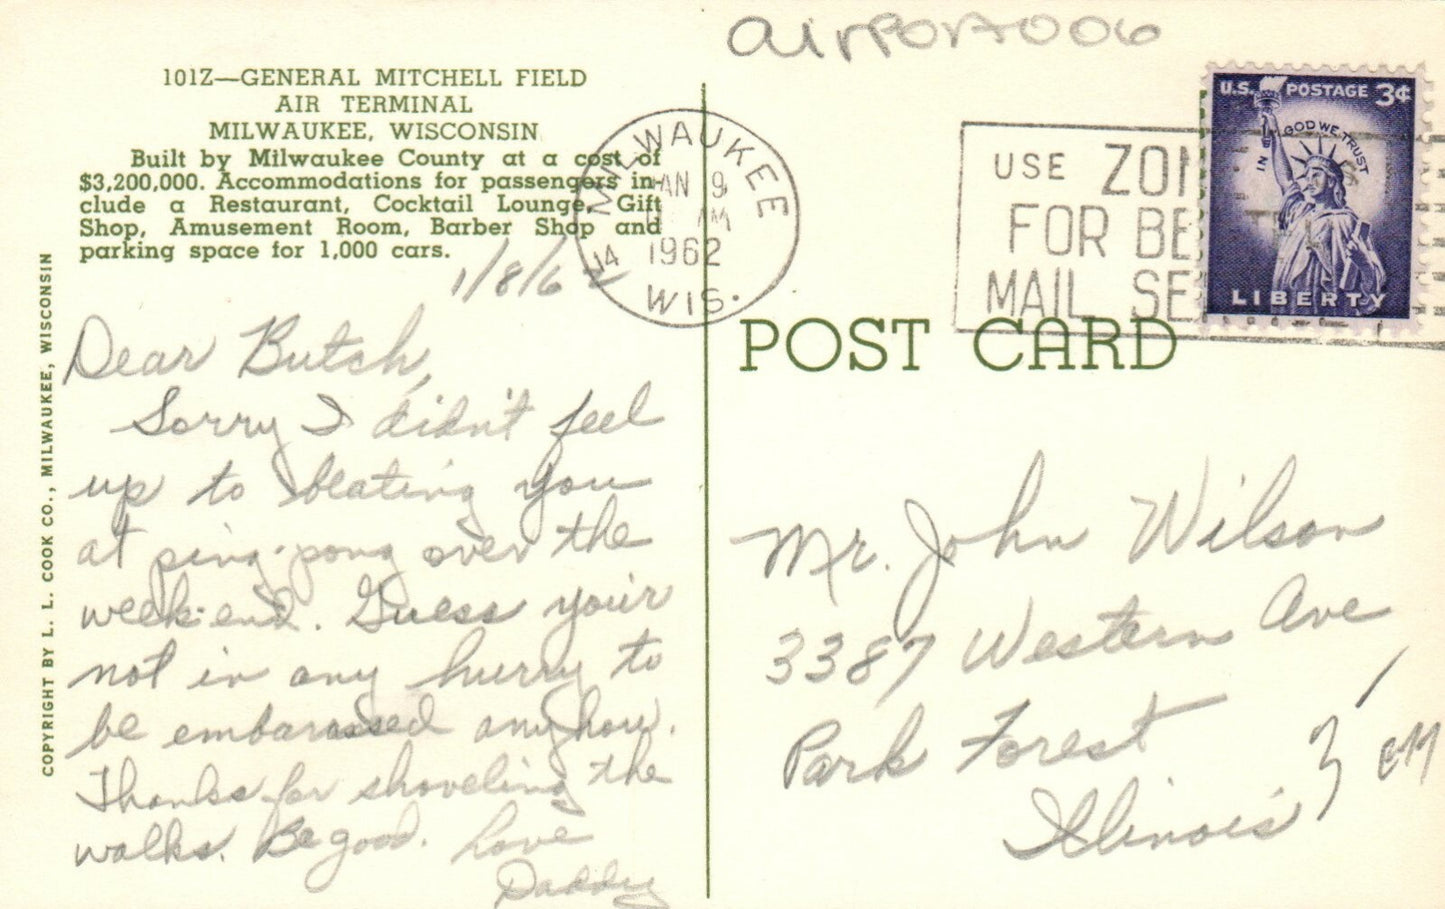 airport006
101Z—GENERAL MITCHELL FIELD
AIR TERMINAL
MILWAUKEE, WISCONSIN
Built by Milwaukee County at a cost of
$3,200,000. Accommodations for passengers in-
clude a Restaurant, Cocktail Lounge, Gift
Shop, Amusement Room, Barber Shop and
parking space for 1,000 cars.
COPYRIGHT BY L. L. COOK CO., MILWAUKEE, WISCONSIN
1/8/62
Dear Butch,
Sorry I didn't feel
up to beating you
at ping-pong over the
week-end. Guess your
not in any hurry to
be embarassed anyhow.
Thanks for shoveling the
walks. Be good. Love
Daddy
MILWAUKEE
JAN 9
AM
1962
WIS.
USE ZON
FOR BE
MAIL SE
U.S. POSTAGE 3¢
IN GOD WE TRUST
LIBERTY
POST CARD
Mr. John Wilson
3387 Western Ave
Park Forest
Illinois